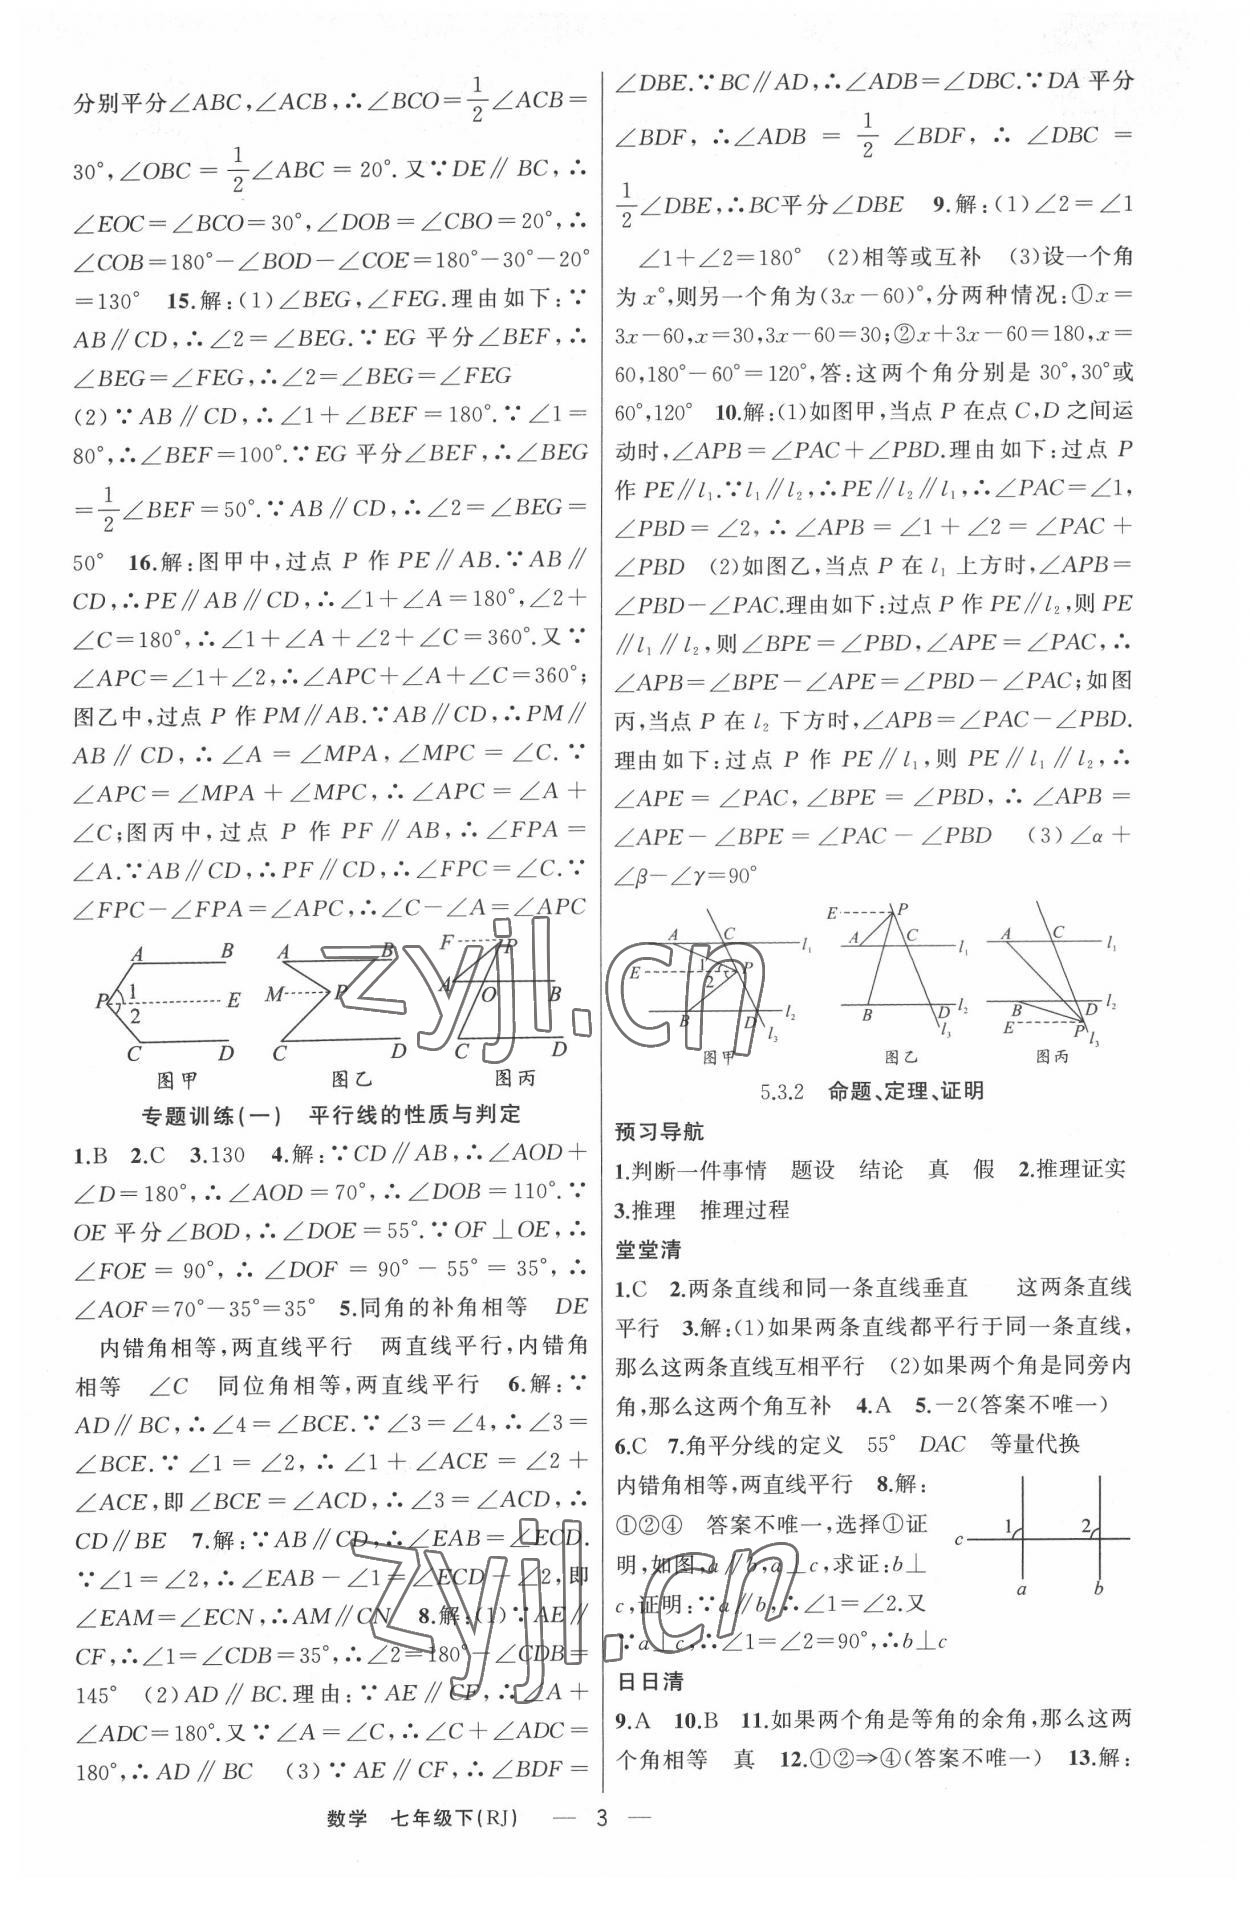 分别平分∠ABC,∠ACB,∴∠BCO=1/2∠ACB=
30°,∠OBC=1/2∠ABC=20°.又∵DE∥BC,∴
∠EOC=∠BCO=30°,∠DOB=∠CBO=20°,∴
∠COB=180°-∠BOD-∠COE=180°-30°-20°
=130° 15.解:(1)∠BEG,∠FEG.理由如下:∵
AB∥CD,∴∠2=∠BEG.∵EG平分∠BEF,∴
∠BEG=∠FEG,∴∠2=∠BEG=∠FEG
(2)∵AB∥CD,∴∠1+∠BEF=180°.∵∠1=
80°,∴∠BEF=100°.∵EG平分∠BEF,∴∠BEG
=1/2∠BEF=50°.∵AB∥CD,∴∠2=∠BEG=
50° 16.解:图甲中,过点P作PE∥AB.∵AB∥
CD,∴PE∥AB∥CD,∴∠1+∠A=180°,∠2+
∠C=180°,∴∠1+∠A+∠2+∠C=360°.又∵
∠APC=∠1+∠2,∴∠APC+∠A+∠C=360°;
图乙中,过点P作PM∥AB.∵AB∥CD,∴PM∥
AB∥CD,∴∠A=∠MPA,∠MPC=∠C.∵
∠APC=∠MPA+∠MPC,∴∠APC=∠A+
∠C;图丙中,过点P作PF∥AB,∴∠FPA=
∠A.∵AB∥CD,∴PF∥CD,∴∠FPC=∠C.∵
∠FPC-∠FPA=∠APC,∴∠C-∠A=∠APC
A B P 1 2 E C D
图甲
A B M P C D
图乙
F P A O B C D
图丙
专题训练(一) 平行线的性质与判定
1.B 2.C 3.130 4.解:∵CD∥AB,∴∠AOD+
∠D=180°,∴∠AOD=70°,∴∠DOB=110°.∵
OE平分∠BOD,∴∠DOE=55°.∵OF⊥OE,∴
∠FOE=90°,∴∠DOF=90°-55°=35°,∴
∠AOF=70°-35°=35° 5.同角的补角相等 DE
内错角相等,两直线平行 两直线平行,内错角
相等 ∠C 同位角相等,两直线平行 6.解:∵
AD∥BC,∴∠4=∠BCE.∵∠3=∠4,∴∠3=
∠BCE.∵∠1=∠2,∴∠1+∠ACE=∠2+
∠ACE,即∠BCE=∠ACD,∴∠3=∠ACD,∴
CD∥BE 7.解:∵AB∥CD,∴∠EAB=∠ECD.
∵∠1=∠2,∴∠EAB-∠1=∠ECD-∠2,即
∠EAM=∠ECN,∴AM∥CN 8.解:(1)∵AE∥
CF,∴∠1=∠CDB=35°,∴∠2=180°-∠CDB=
145° (2)AD∥BC.理由:∵AE∥CF,∴∠A+
∠ADC=180°.又∵∠A=∠C,∴∠C+∠ADC=
180°,∴AD∥BC (3)∵AE∥CF,∴∠BDF=
∠DBE.∵BC∥AD,∴∠ADB=∠DBC.∵DA平分
∠BDF,∴∠ADB=1/2∠BDF,∴∠DBC=
1/2∠DBE,∴BC平分∠DBE 9.解:(1)∠2=∠1
∠1+∠2=180° (2)相等或互补 (3)设一个角
为x°,则另一个角为(3x-60)°,分两种情况:①x=
3x-60,x=30,3x-60=30;②x+3x-60=180,x=
60,180°-60°=120°,答:这两个角分别是30°,30°或
60°,120° 10.解:(1)如图甲,当点P在点C,D之间运
动时,∠APB=∠PAC+∠PBD.理由如下:过点P
作PE∥l₁.∵l₁∥l₂,∴PE∥l₂∥l₁,∴∠PAC=∠1,
∠PBD=∠2,∴∠APB=∠1+∠2=∠PAC+
∠PBD (2)如图乙,当点P在l₁上方时,∠APB=
∠PBD-∠PAC.理由如下:过点P作PE∥l₂,则PE
∥l₁∥l₂,则∠BPE=∠PBD,∠APE=∠PAC,∴
∠APB=∠BPE-∠APE=∠PBD-∠PAC;如图
丙,当点P在l₂下方时,∠APB=∠PAC-∠PBD.
理由如下:过点P作PE∥l₁,则PE∥l₁∥l₂,∴
∠APE=∠PAC,∠BPE=∠PBD,∴∠APB=
∠APE-∠BPE=∠PAC-∠PBD (3)∠α+
∠β-∠γ=90°
A C l₁ E 1 P 2 B D l₂ l₃
图甲
E P A C l₁ B D l₂ l₃
图乙
A C l₁ B D l₂ E P l₃
图丙
5.3.2 命题、定理、证明
预习导航
1.判断一件事情 题设 结论 真 假 2.推理证实
3.推理 推理过程
堂堂清
1.C 2.两条直线和同一条直线垂直 这两条直线
平行 3.解:(1)如果两条直线都平行于同一条直线,
那么这两条直线互相平行 (2)如果两个角是同旁内
角,那么这两个角互补 4.A 5.-2(答案不唯一)
6.C 7.角平分线的定义 55° DAC 等量代换
内错角相等,两直线平行 8.解:
①②④ 答案不唯一,选择①证
明,如图,a∥b,a⊥c,求证:b⊥
c,证明:∵a∥b,∴∠1=∠2.又
∵a⊥c,∴∠1=∠2=90°,∴b⊥c
c 1 2 a b
日日清
9.A 10.B 11.如果两个角是等角的余角,那么这两
个角相等 真 12.①②⇒④(答案不唯一) 13.解:
数学 七年级下(RJ) — 3 —
zyjl.cn
zyjl.cn